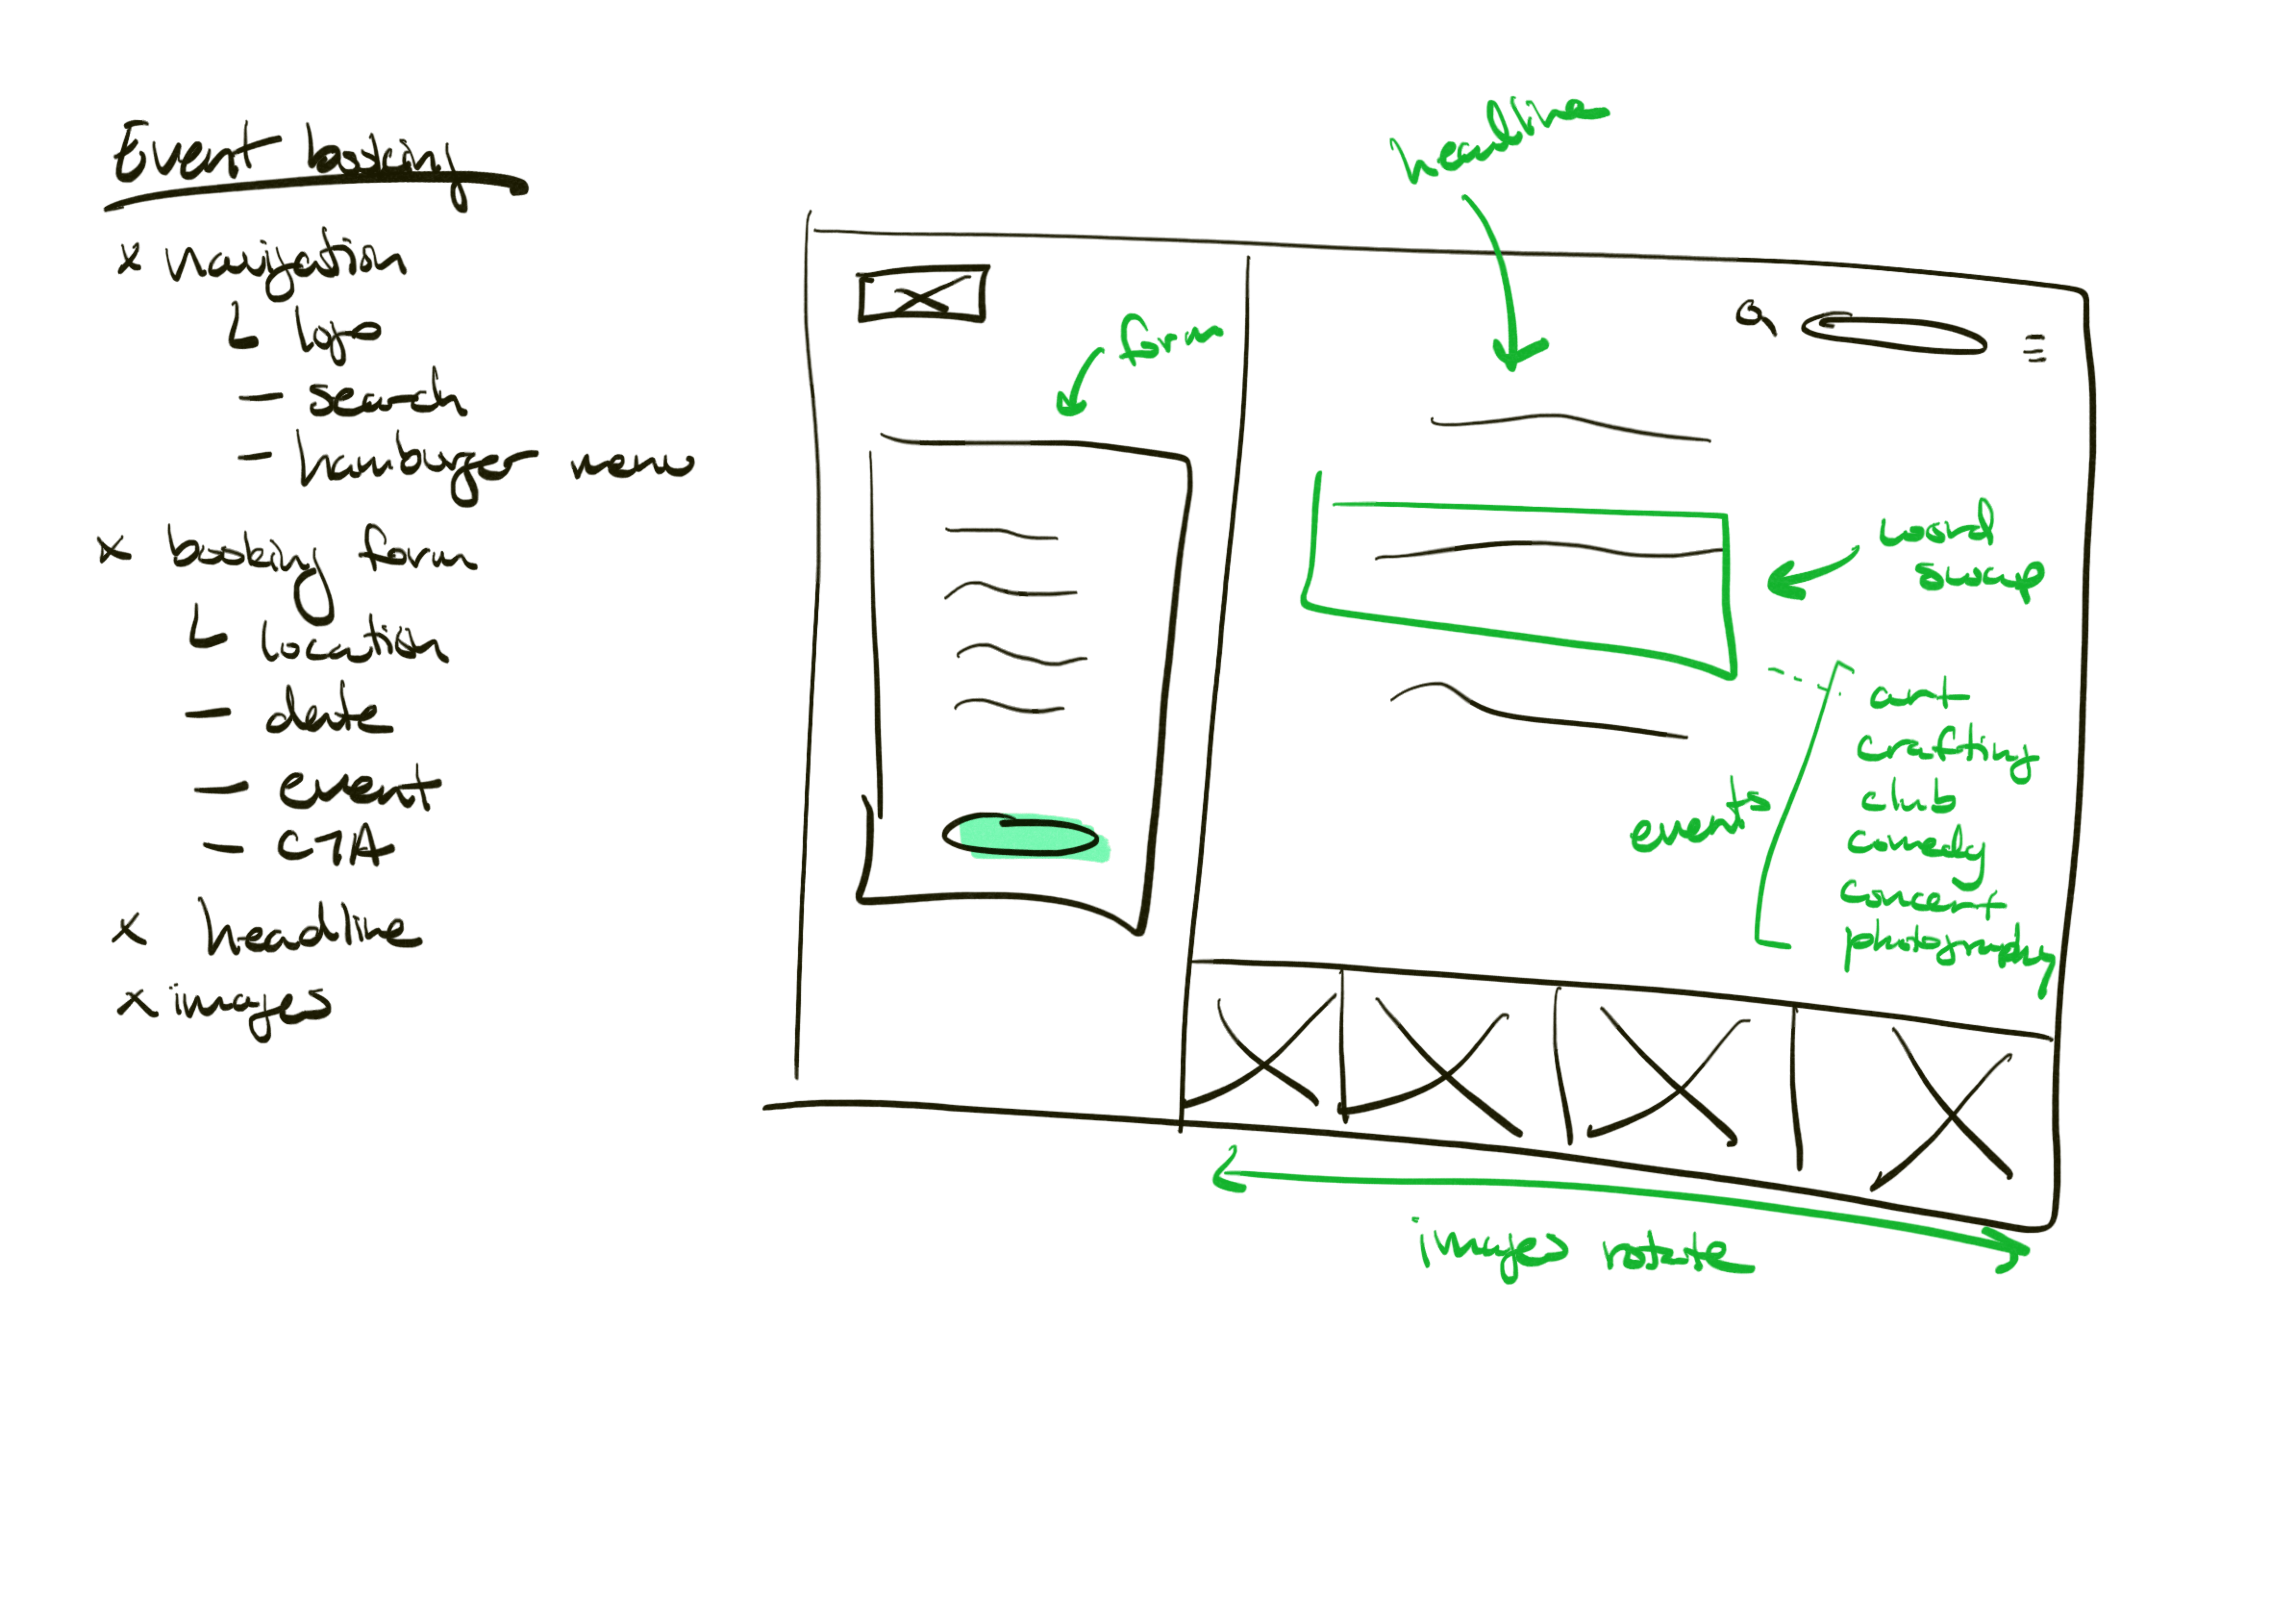 Event booking
x navigation
└ logo
- search
- hamburger menu
x booking form
└ location
- date
- event
- CTA
x headline
x images
headline
form
word
swap
events
art
crafting
club
comedy
concert
photography
images rotate